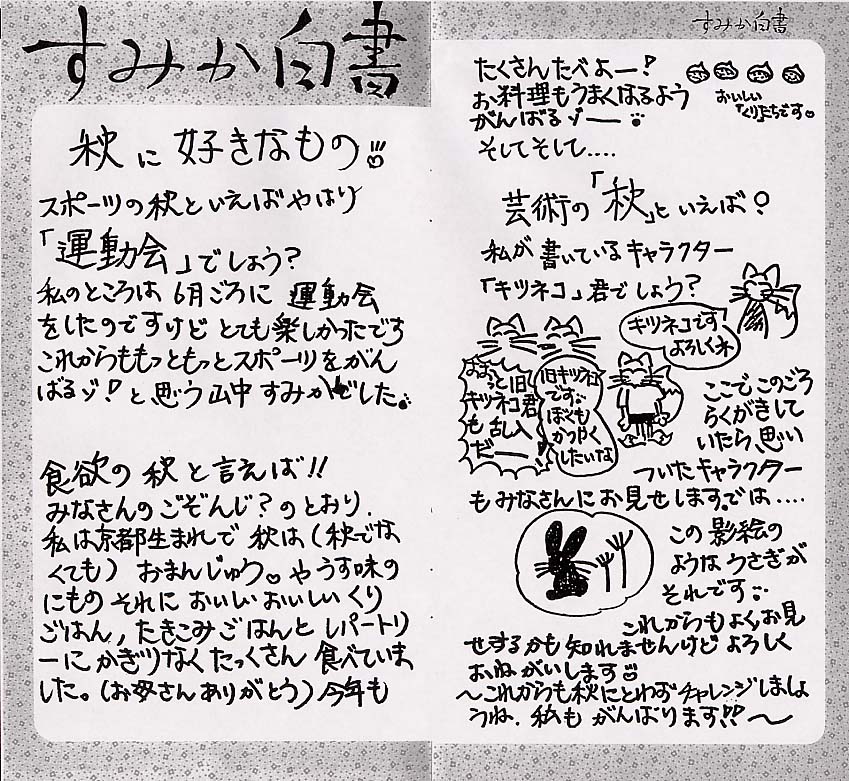 すみか白書
秋に好きなもの
スポーツの秋といえばやはり
「運動会」でしょう?
私のところは6月ごろに運動会
をしたのですけどとても楽しかったです
これからももっともっとスポーツをがん
ばるゾ!と思う山中すみかでした。
食欲の秋と言えば!!
みなさんのごぞんじ?のとおり、
私は京都生まれで秋は(秋でな
くても)おまんじゅう。やうす味の
にものそれにおいしいおいしいくり
ごはん,たきこみごはんとレパートリ
ーにかぎりなくたっくさん食べていま
した。(お母さんありがとう)今年も
すみか白書
たくさんたべよー!
お料理もうまくなるよう
がんばるゾー
おいしい
「くり」たちです。
そしてそして....
芸術の「秋」といえば?
私が書いているキャラクター
「キツネコ」君でしょう?
キツネコです
よろしくネ
おおっと旧
キツネコ君
も乱入
だー
旧キツネコ
です。
ぼくも
かつやく
したいな
ここでこのごろ
らくがきして
いたら、思い
ついたキャラクター
もみなさんにお見せします。では....
この影絵の
ようなうさぎが
それです。
これからもよくお見
せするかも知れませんけどよろしく
おねがいします
〜これからも秋にとわずチャレンジしましょ
うね。私もがんばります!!〜